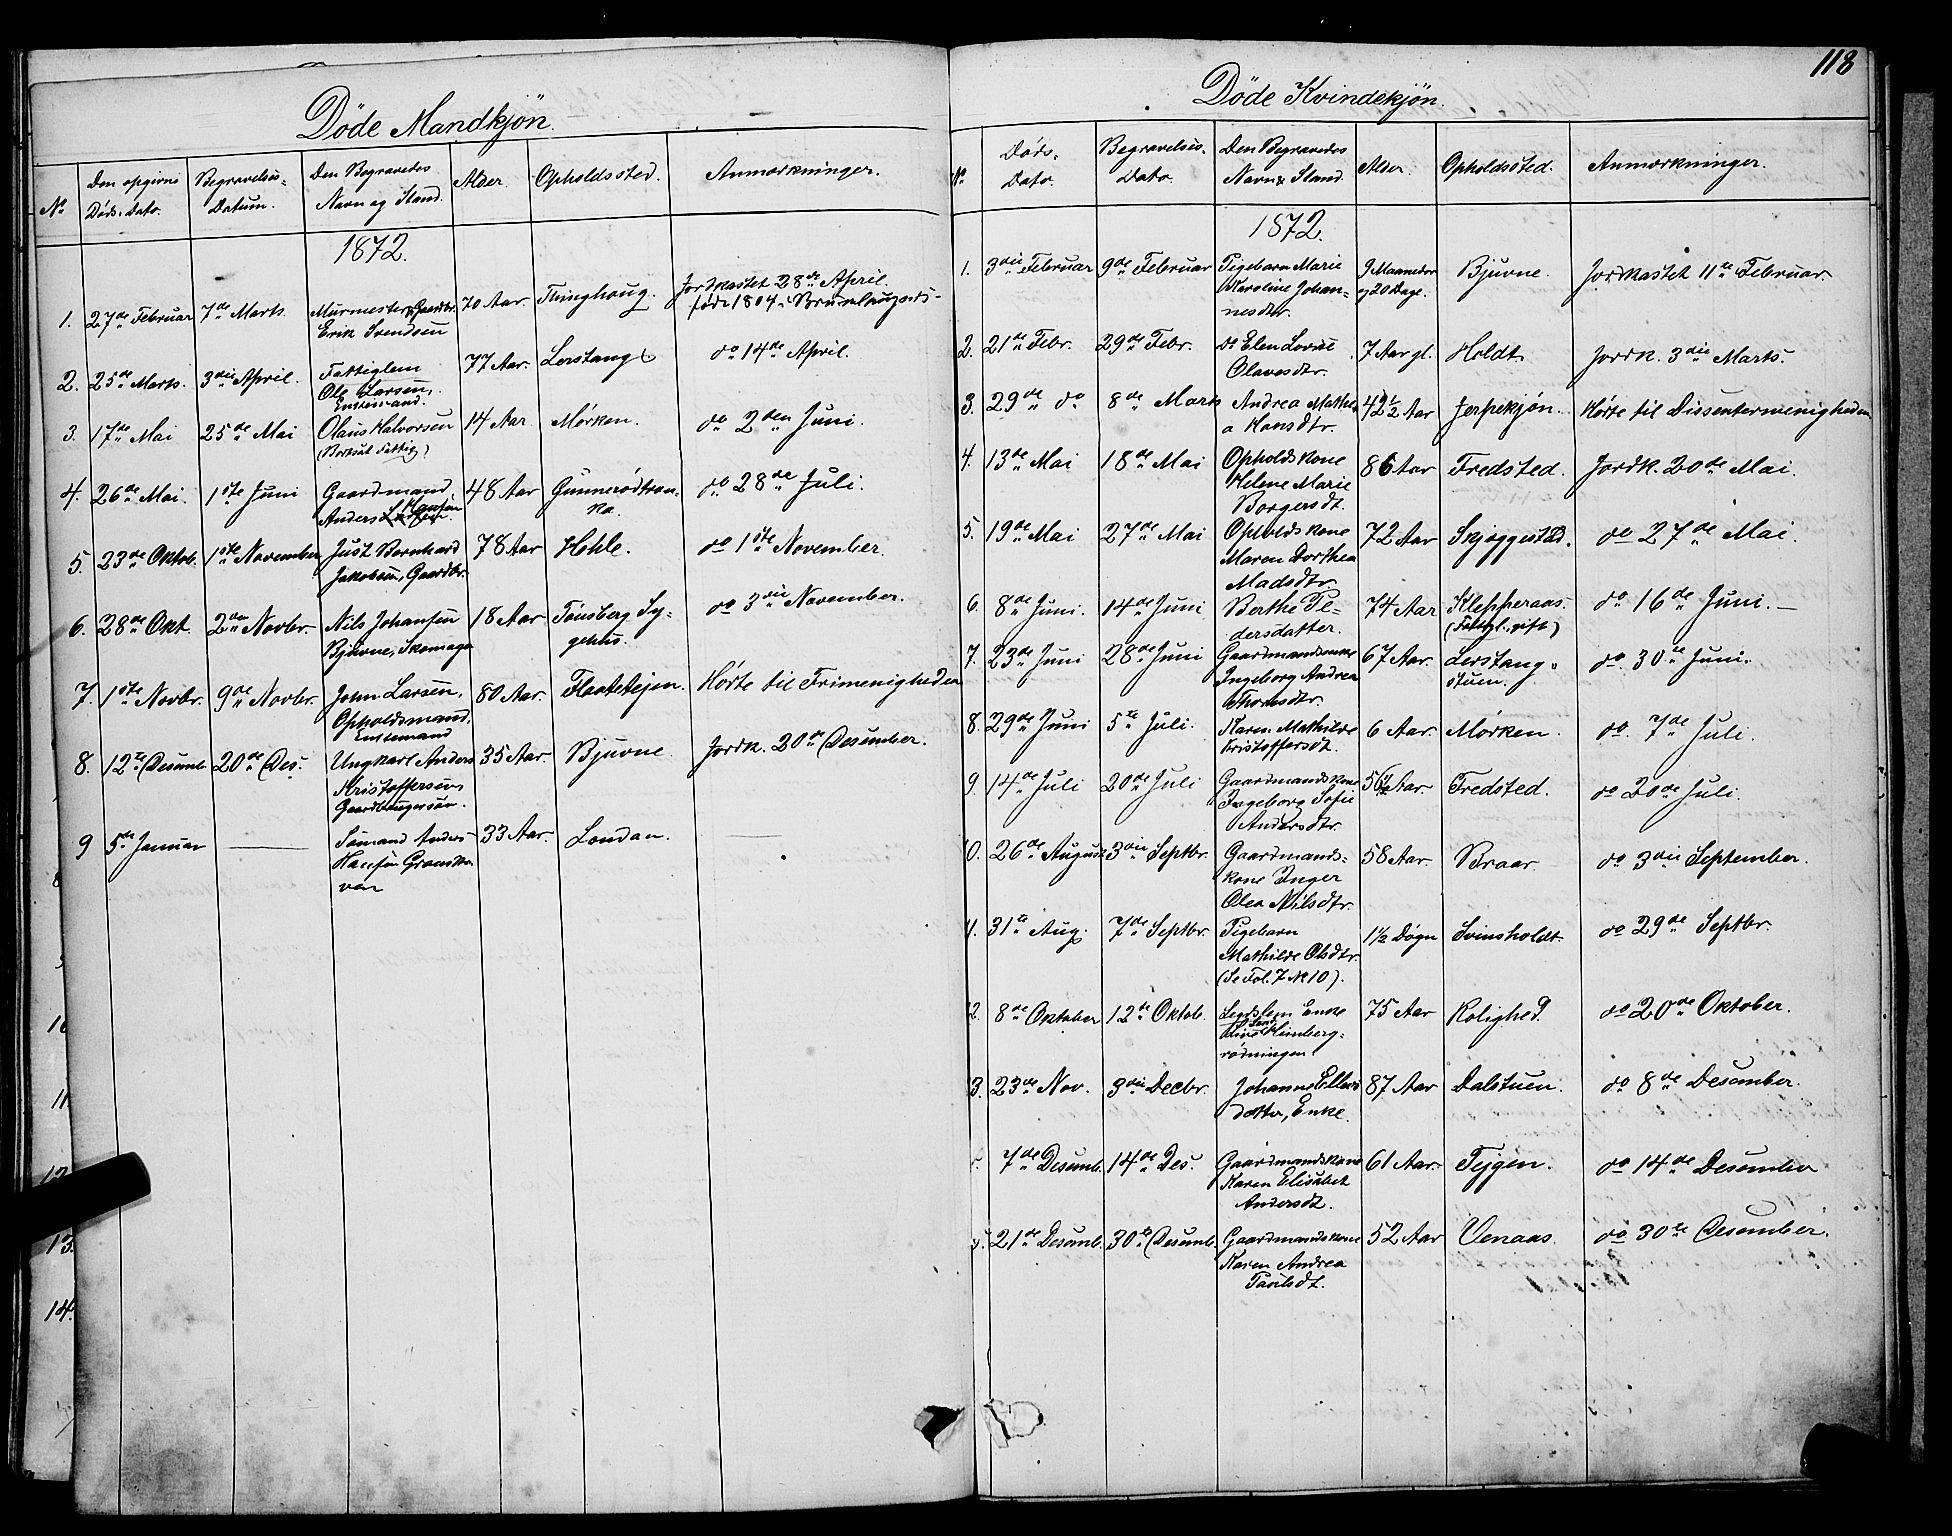 118
Döde Mandkjön.
No
Den opgivne Döds-Dato.
Begravelses-Datum.
Den Begravedes Navn og Stand.
Alder.
Opholdssted.
Anmærkninger.
1872.
1. 27de Februar 7de Marts. Murmester Erik Svendsen 70 Aar. Thinghoug. Jordkastet 28de April. föde 1804 i
2. 25de Marts. 3die April. Fattiglem Ole Larsen, Enkemand. 77 Aar. Lerstang do 14de April.
3. 17de Mai 25de Mai Olaus Halvorsen (Bortsat Fattig) 14 Aar Mörken. do 2den Juni.
4. 26de Mai. 1ste Juni Gaardmand, Anders Hansen 48 Aar Gunnerödtran-ka. do 28de Juli.
5. 23de Oktob. 1ste November Just Bernhard Jakobsen, Gaardbr. 78 Aar Hehle. do 1ste November.
6. 28de Okt. 2den Novbr. Nils Johansen Bjuvne, Skomager 18 Aar Tönsberg Sy-gehus. do 3die November.
7. 1ste Novbr. 9de Novbr. John Larsen, Opholdsmand. Enkemand 80 Aar. Flaatetejen. Hörte til Frimenigheden
8. 12te Desemb. 20de Des. Ungkarl Anders Kristoffersen, Gaardbrugersön. 35 Aar. Bjuvne Jordk. 20de Desember.
9 5de Januar Sömand Anders Hansen 33 Aar. London.
Döde Kvindekjön.
No
Döds-Dato.
Begravelses-Dato.
Den Begravedes Navn & Stand.
Alder.
Opholdssted.
Anmærkninger.
1872.
1. 3die Februar 9de Februar Pigebarn Marie Karoline Johan-nesdtr. 9 Maaneder og 20 Dage. Bjuvne. Jordkastet 11te Februar
2. 21de Febr. 29de Febr. do Elen Lovise Olavesdtr. 7 Aar gl. Holdt Jordk. 3die Marts.
3. 29de do 8de Marts Andrea Mathe-a Hansdtr. 42½ Aar Jerpekjön. Hörte til Dissentermenigheden
4. 13de Mai 18de Mai Opholdskone Helene Marie Borgersdt. 86 Aar Fredsted. Jordk. 20de Mai.
5. 19de Mai 27de Mai Opholdskone Maren Dorthea Madsdtr. 72 Aar Skjæggestad. do 27de Mai.
6. 8de Juni. 14de Juni Berthe Pe-dersdatter. 74 Aar Klepperaas. (Fattigl., gift) do 16de Juni.
7. 23de Juni 28de Juni Gaardmandsenke Ingeborg Andrea Thorsdtr. 67 Aar. Lerstang-stuen. do. 30te Juni.
8. 29de Juni 5te Juli. Karen Mathilde Kristoffersdt. 6 Aar. Mörken. do. 7de Juli.
9. 14de Juli 20de Juli Gaardmandskone Ingeborg Sofie Andersdtr. 56½ Aar Fredsted. do 20de Juli.
10. 26de August 3die Septbr. Gaardmands-kone Inger Olea Nilsdtr. 58 Aar Braar do 3die September.
11. 31te Aug. 7de Septbr. Pigebarn Mathilde Olsdtr. (Se Fol. 7 No 10). 1½ Dögn Svinsholdt. do 29de Septbr.
12. 8de Oktober 12te Oktob. Enke 75 Aar Rolighed. do 20de Oktober.
13. 23de Nov. 3die Decbr. Johanne Ellevs datter, Enke. 87 Aar Dalstuen. do 8de Desember.
7de Desemb. 14de Des. Gaardmandskone Karen Elisabet Andersdt. 61 Aar. Tejgen. do 14de Desember
21de Desemb. 30te Desemb. Gaardmandskone Karen Andrea Paulsdt. 52 Aar Venaas. do 30te Desember.
11.
12.
13.
14.